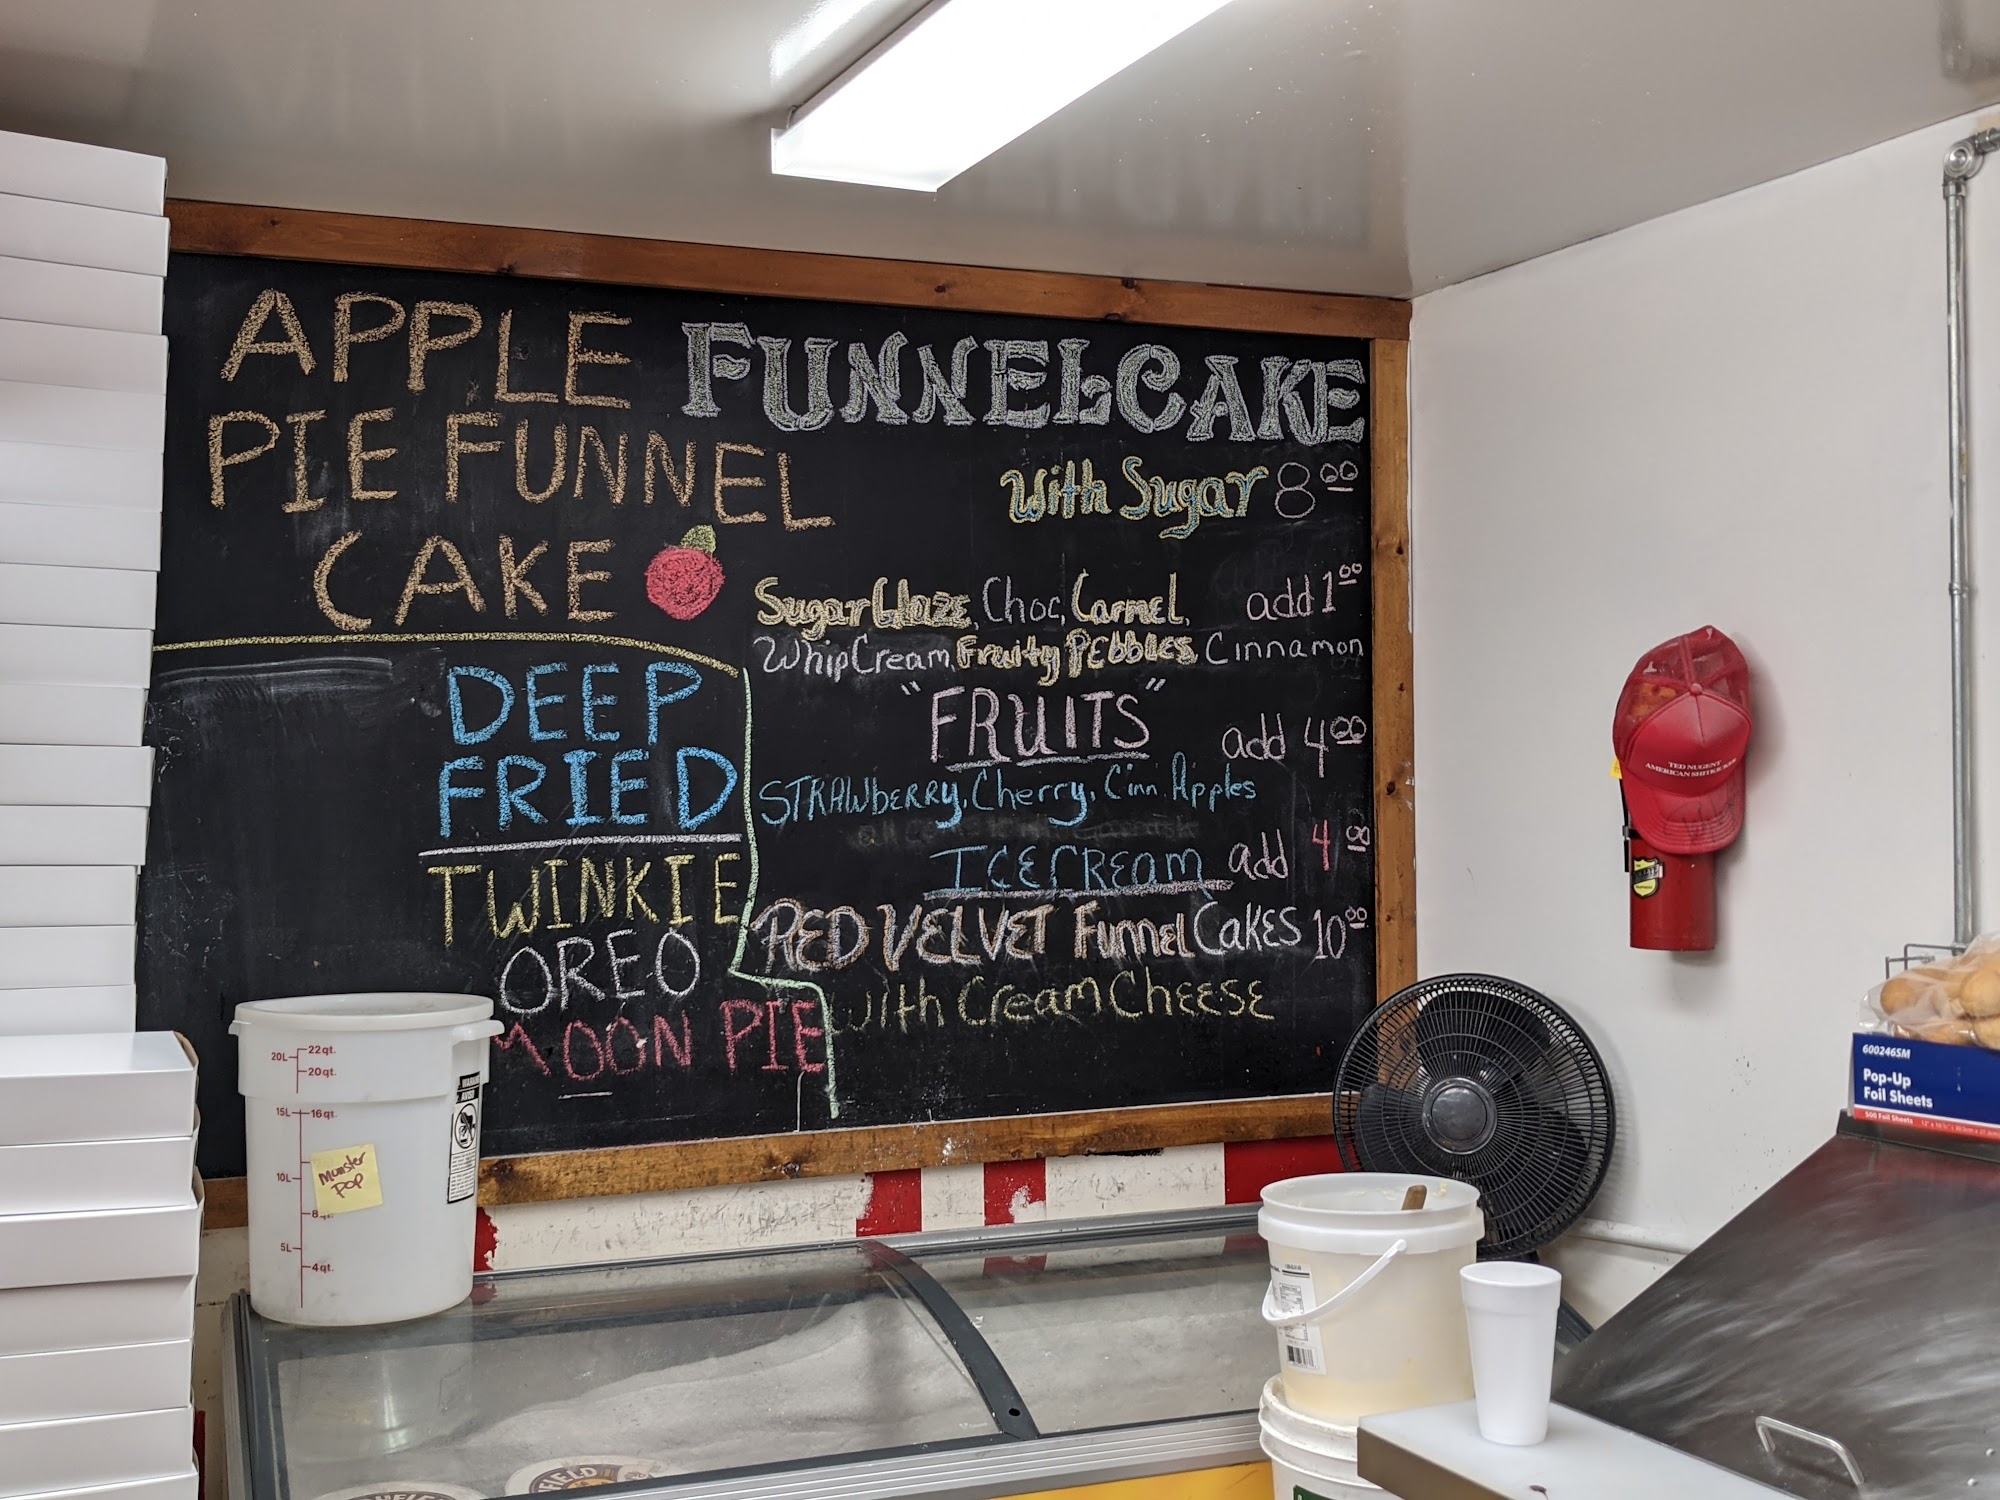 APPLE
PIE FUNNEL
CAKE
DEEP
FRIED
TWINKIE
OREO
MOON PIE
FUNNEL CAKE
With Sugar 8.00
Sugar Glaze, Choc, Carmel, add 1.00
Whip Cream, Fruity PEbbles Cinnamon
"FRUITS"
add 4.00
STRAWbERRy, Cherry, Cinn. Apples
ICE CREAM add 4.00
RED VELVET Funnel CakES 10.00
with Cream CHEESE
TED NUGENT
AMERICAN SHITKICKER
20L 22qt.
20qt.
15L 16qt.
10L
8qt.
5L
4qt.
Munster
Pop
600246SM
Pop-Up
Foil Sheets
500 Foil Sheets